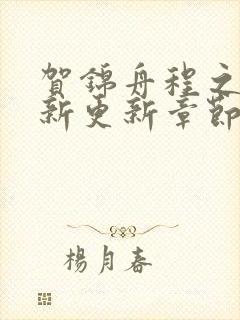 賀錦舟程之
新更新章節
楊月春